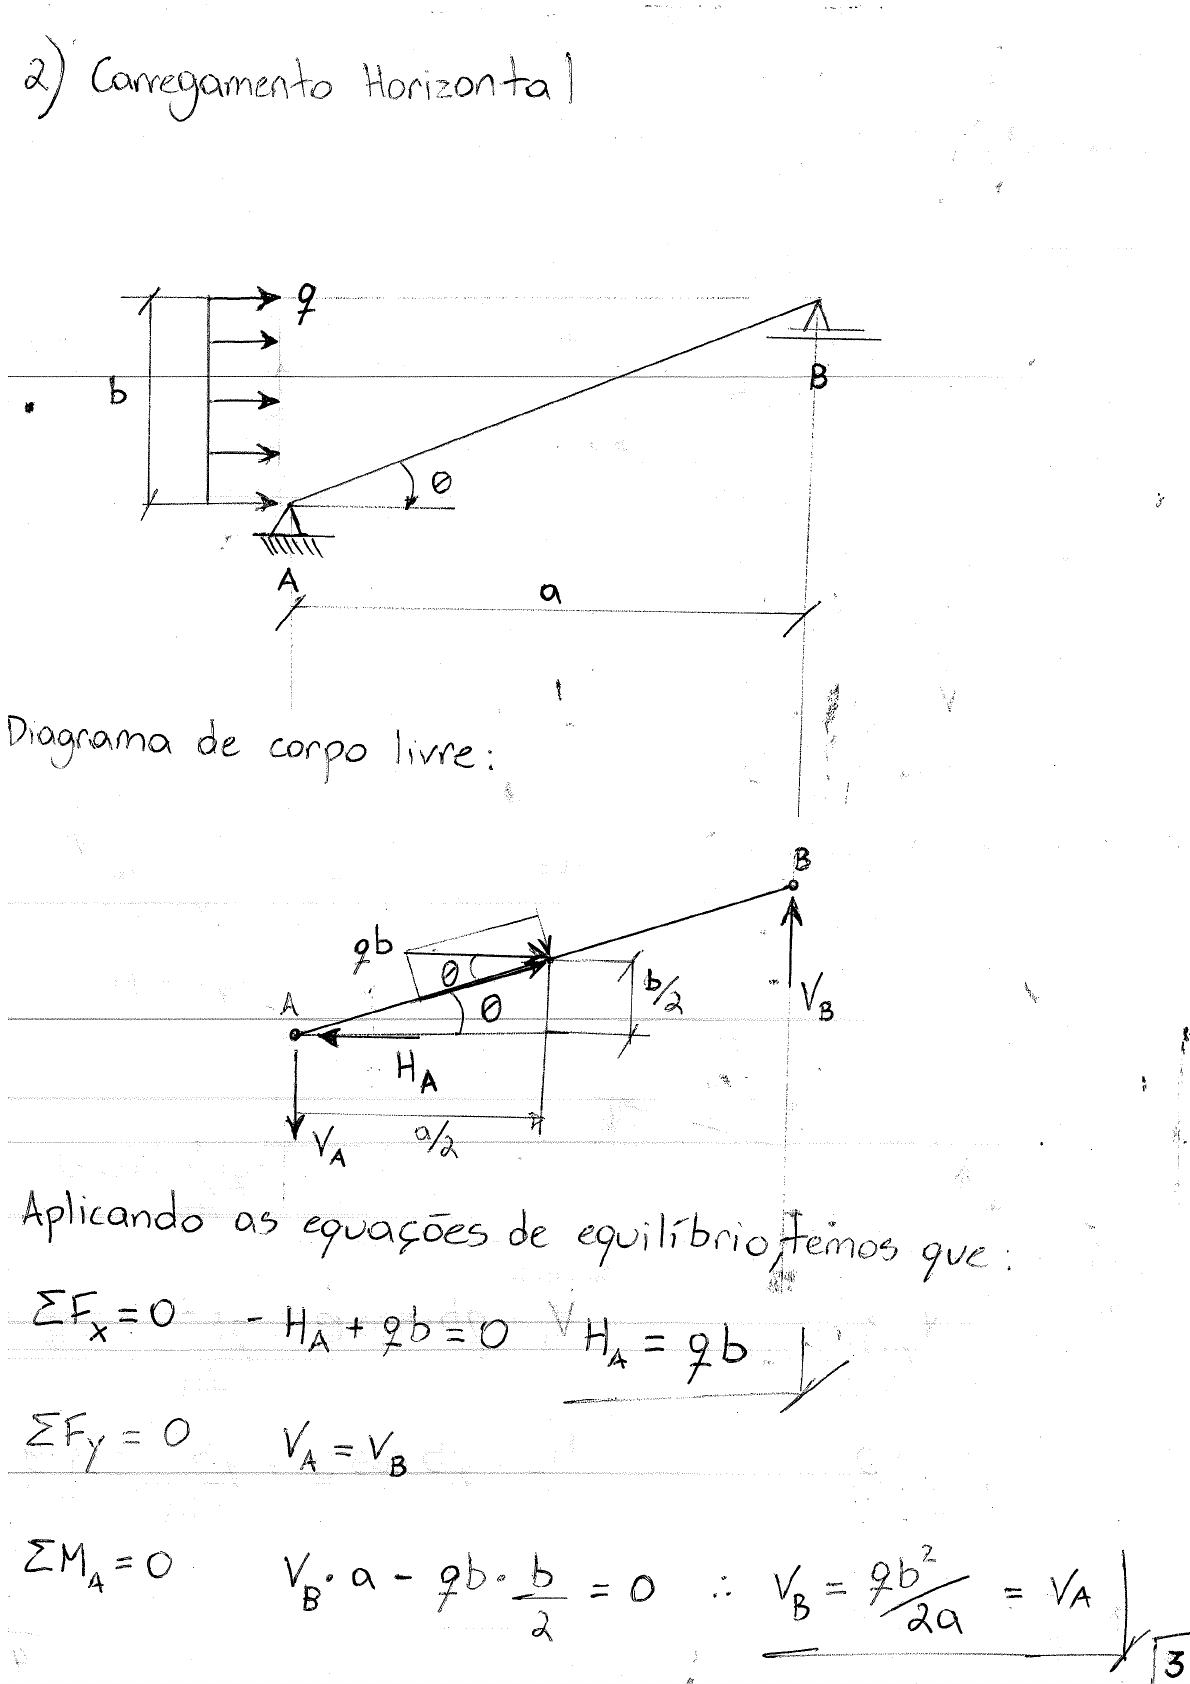 2) Carregamento Horizontal
q
b
B
θ
A
a
Diagrama de corpo livre:
B
qb
θ
b/2
A
θ
V_B
H_A
V_A
a/2
Aplicando as equações de equilíbrio, temos que:
ΣF_x = 0 - H_A + qb = 0 H_A = qb
ΣF_y = 0 V_A = V_B
ΣM_A = 0 V_B · a - qb · b/2 = 0 ∴ V_B = qb²/2a = V_A
3